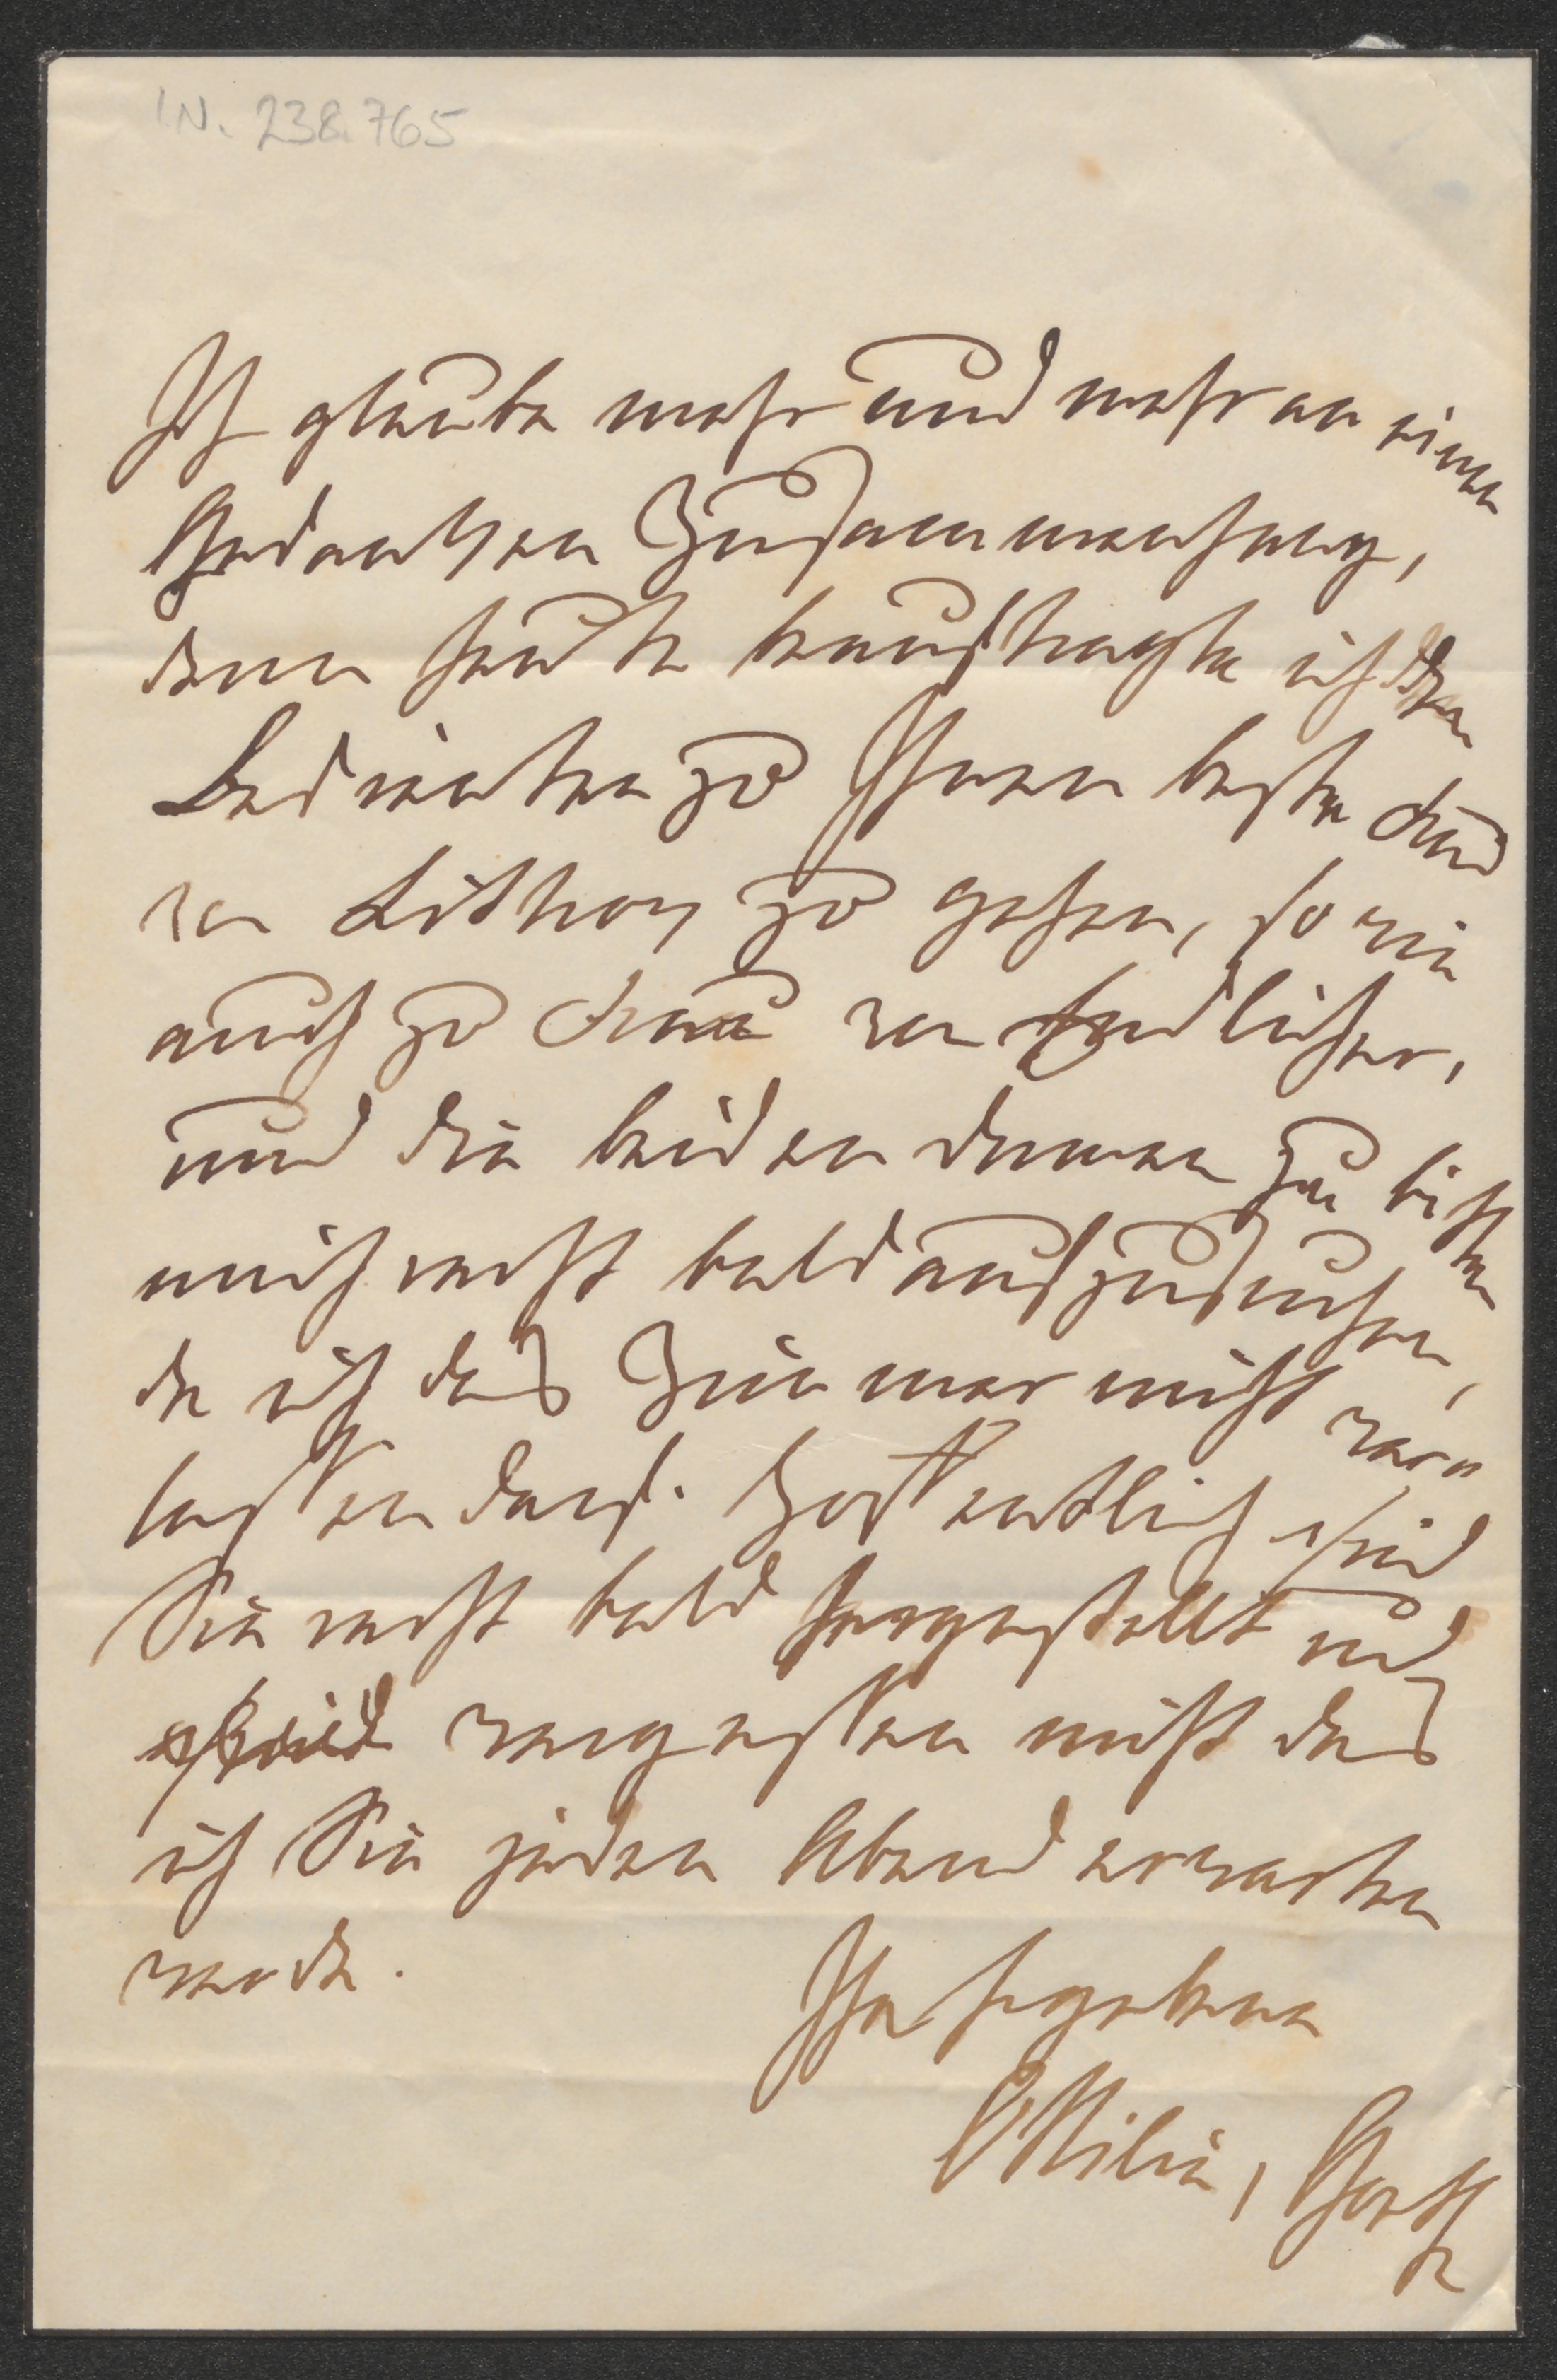 I.N. 238.765
Ich glaube mehr und mehr an einen
Gedanken Zusammenhang,
denn heute beauftragte ich den
Bedienten zu Ihnen beste Frau
von Littrow zu gehen, so wie
auch zu Frau von Endlicher,
und die beiden Damen zu bitten
mich recht bald aufzusuchen,
da ich das Zimmer nicht ver
lassen darf. Hoffentlich sind
Sie recht bald hergestellt und
vergessen nicht das
ich Sie jeden Abend erwarten
werde.
Ihr ergebene
Ottilie, Goethe